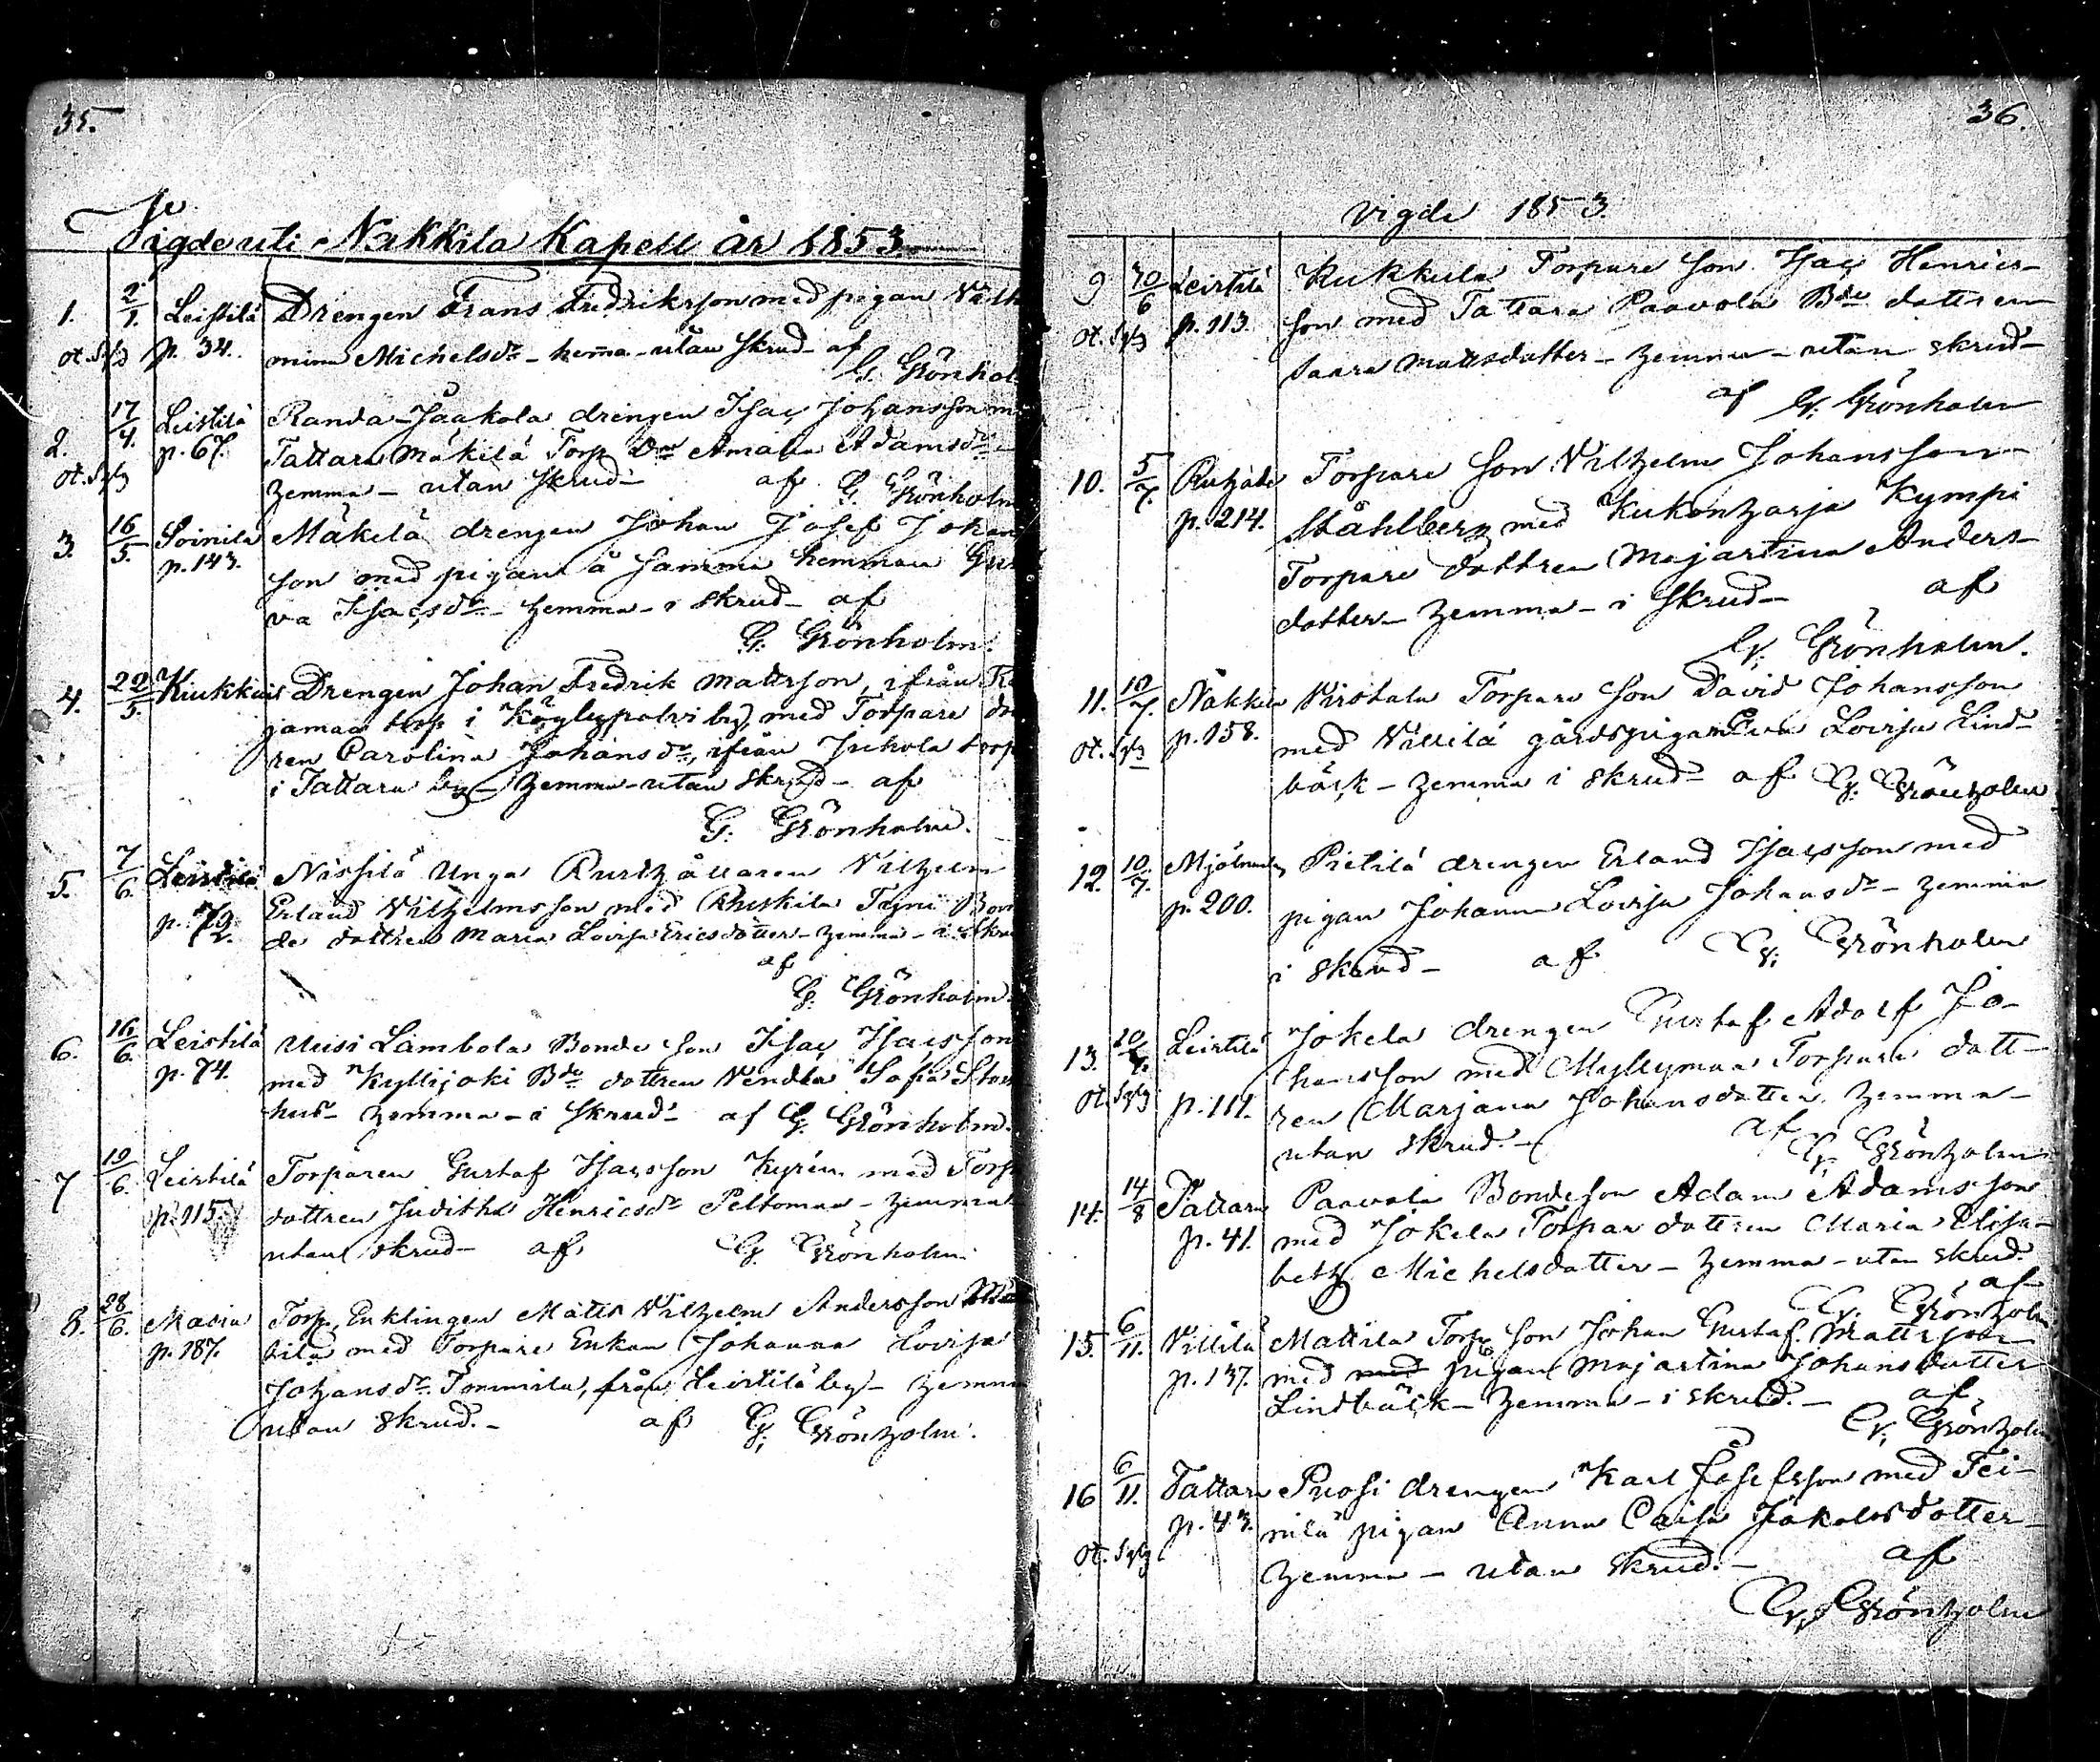 35.
Vigde uti Nakkila Kapell år 1853.
1. 2/1. Leistilä Drengen Frans Fredriksson med pigan Vilh
p. 34. mina Michelsdr - hemma - utan skrud - af
G. Grönhol
2. 17/4. Leistilä Randa-Jaakola drengen Isaç Johansson m
p. 67. Tattara Mäkilä Torp. Dr Amalia Adamsdr -
hemma - utan skrud - af G. Grönholm
3. 16/5. Soinila Mäkilä drengen Johan Josef Johan
p. 143. son med pigan å samma hemman Gus
va Isaçsdr - hemma - i skrud - af
G. Grönholm.
4. 22/5. Kiukkais Drengen Johan Fredrik Mattsson, ifrån
jamaa torp i Köylypolvi by, med Torpare do
ren Carolina Johansdr, ifrån Juhola torp
i Tattara by - hemma - utan skrud - af
G. Grönholm.
5. 7/6. Leistilä Nissilä Unga Rusthållaren Vilhelm
p. 72. Erland Vilhelmsson med Ruskila Tyni Bon
de dottren Maria Lovisa Ericsdotter - hemma - i skru
af
G. Grönholm.
6. 16/6. Leistilä Uusi Lambola Bonde son Isaç Isaçsson
p. 74. med Kyllijoki Bde dottren Vendla Sofia
hus - hemma - i skrud - af G. Grönholm.
7 19/6. Leistilä Torparen Gustaf Isaçsson Kyrén med Torp
p. 115. dottren Juditha Henricsdr Peltomaa - hemma
utan skrud - af G. Grönholm.
8. 28/6. Masia Torp. Enklingen Matts Vilhelm Andersson
p. 187. tila med Torpare Enkan Johanna Lovisa
Johansdr Tommila, från Leistilä by - hemma
utan skrud. - af G. Grönholm.
36.
Vigde 1853.
9 /6 Leistilä Kukkula Torpare son Isaç Henrics-
p. 113. son med Tattara Paavola Bde dottren
Saara Mattsdotter - hemma - utan skrud -
af G. Grönholm
10. 5/7. Torpare son Vilhelm Johansson
p. 214. Ståhlberg med Kukonharja Kympi
Torpare dottren Majastina Anders-
dotter - hemma - i skrud - af
G. Grönholm.
11. 10/7. Nakkila Virstala Torpare son David Johansson
p. 158. med Villilä gårdspigan Eva Lovisa Lind-
bäçk - hemma i skrud - af G. Grönholm
12. 10/7. Pietilä drengen Erland Isaçsson med
p. 200. pigan Johanna Lovisa Johansdr - hemma
i skrud - af G. Grönholm
13. 10/7. Leistilä Jokela drengen Gustaf Adolf Jo-
p. 111. hansson med Myllymaa Torpare dott-
ren Marjana Johansdotter hemma -
utan skrud. - af G. Grönholm
14. 14/8 Tattara Paavola Bondeson Adam Adamsson
p. 41. med Jokela Torpar dottren Maria Elisa-
beth Michelsdotter - hemma - utan skrud.
af G. Grönholm
15. 6/11. Villilä Mattila Torp. son Johan Gustaf Mattsson
p. 137. med med pigan Majastina Johansdotter
Lindbäçk - hemma - i skrud. - af
G. Grönholm
16 6/11. Tattara Puosi drengen Karl Josefsson med Tei-
p. 43. nilä pigan Anna Caisa Jakobsdotter -
hemma - utan skrud. - af
G. Grönholm